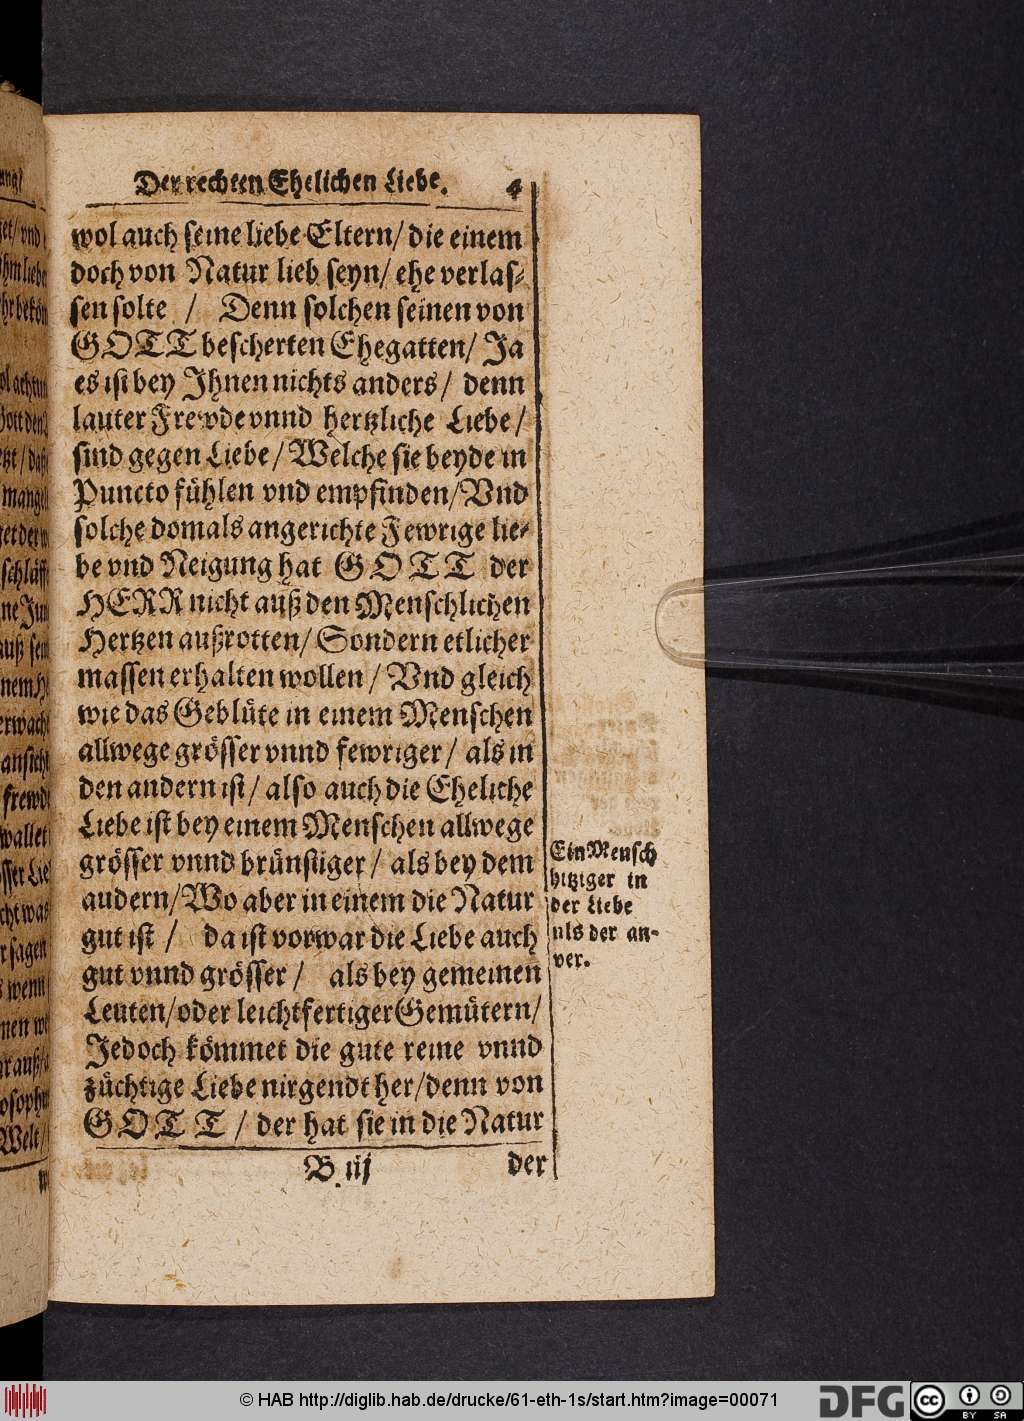 Der rechten Ehelichen Liebe. 4
wol auch seine liebe Eltern/ die einem
doch von Natur lieb seyn/ ehe verlas-
sen solte / Denn solchen seinen von
GOTT bescherten Ehegatten/ Ja
es ist bey Ihnen nichts anders/ denn
lauter Frewde vnnd hertzliche Liebe/
sind gegen Liebe/ Welche sie beyde in
Puncto fühlen vnd empfinden/ Vnd
solche domals angerichte Fewrige lie-
be vnd Neigung hat GOTT der
HERR nicht auß den Menschlichen
Hertzen außrotten/ Sondern etlicher
massen erhalten wollen/ Vnd gleich
wie das Geblüte in einem Menschen
allwege grösser vnnd fewriger/ als in
den andern ist/ also auch die Eheliche
Liebe ist bey einem Menschen allwege
grösser vnnd brünstiger/ als bey dem
andern/ Wo aber in einem die Natur
gut ist / da ist vorwar die Liebe auch
gut vnnd grösser / als bey gemeinen
Leuten/ oder leichtfertiger Gemütern/
Jedoch kömmet die gute reine vnnd
züchtige Liebe nirgendt her/ denn von
GOTT / der hat sie in die Natur
B iij der
Ein Mensch
hitziger in
der Liebe
als der an-
der.
© HAB http://diglib.hab.de/drucke/61-eth-1s/start.htm?image=00071
DFG
cc BY SA